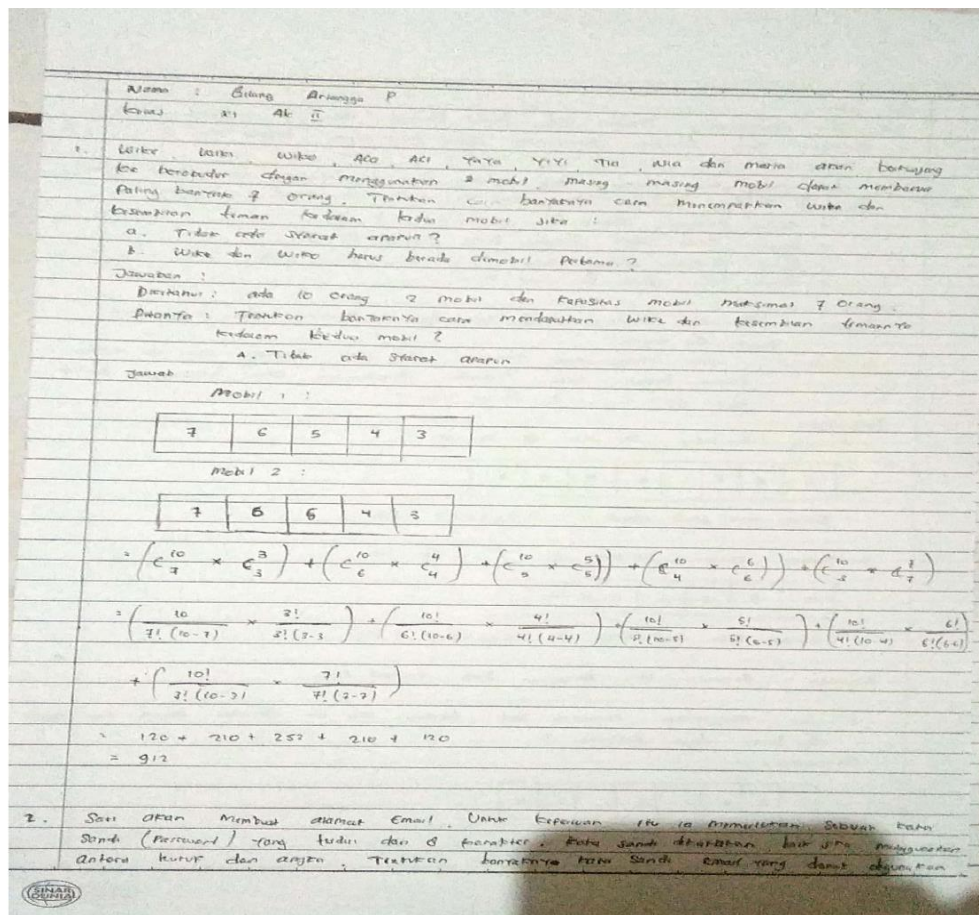 Nama : Gilang Arlangga P
Kelas : XI AK II
1. Wike, Wiko, ACO, ACI, YaYa, YiYi, Tia, Nia dan maria akan
ke borobudur dengan menggunakan 2 mobil. masing masing mobil dapat
Paling banyak 7 orang. Tentukan cara banyaknya cara menempatkan Wike dan
kesembilan teman kedalam kedua mobil jika :
a. Tidak ada syarat apapun ?
b. Wike dan Wiko harus berada dimobil Pertama ?
Jawaban :
Diketahui : ada 10 orang 2 mobil dan kapasitas mobil maksimal 7 orang.
Ditanya : Tentukan banyaknya cara Wike dan kesembilan temannya
kedalam kedua mobil ?
A. Tidak ada syarat apapun
Jawab
Mobil 1 :
7 6 5 4 3
Mobil 2 :
7 6 5 4 3
= (C 10 7 × C 3 3) + (C 10 6 × C 4 4) + (C 10 5 × C 5 5)) + (C 10 4 × C 6 6)) + (C 10 3 × C 7 7)
= (10 / 7! (10-7) × 3! / 3! (3-3) + (10! / 6! (10-6) × 4! / 4! (4-4)) + (10! / 5! (10-5) × 5! / 5! (5-5)) + (10! / 4! (10-4) × 6! / 6! (6-6)
+ (10! / 3! (10-3) × 7! / 7! (7-7))
= 120 + 210 + 252 + 210 + 120
= 912
2. Sari akan Membuat alamat Email. Untuk keperluan itu ia memerlukan sebuah kata
Sandi (Password) yang terdiri dari 8 karakter. Kata sandi dikatakan baik jika menggunakan
antara huruf dan angka. Tentukan banyaknya kata Sandi email yang dapat digunakan
SINAR DUNIA